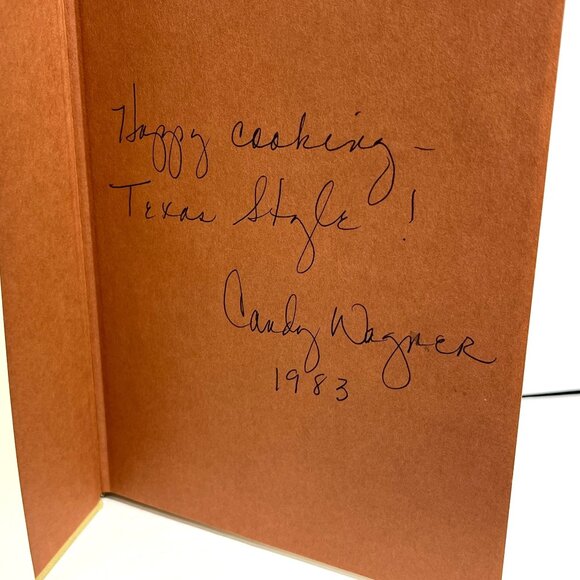 Happy cooking –
Texas Style !
Candy Wagner
1983